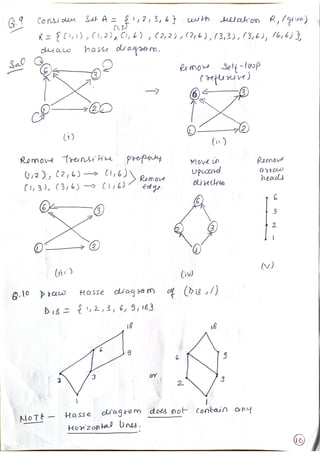 Q.9 Consider Set A = { 1, 2, 3, 6 } with relation R, /(given)
(1,3)
R = { (1,1), (1,2), (1,6), (2,2), (2,6), (3,3), (3,6), (6,6) },
draw hasse diagram.
Sol
6 3
1 2
(i)
→
Remove Self-loop
(reflexive)
6 3
1 2
(ii)
Remove Transitive property
(1,2), (2,6) → (1,6)
(1,3), (3,6) → (1,6)
Remove
edge.
6 3
1 2
(iii)
Move in
upward
direction
6
2 3
1
(iv)
Remove
arrow
heads
6
3
2
1
(v)
Q.10 Draw Hasse diagram of (D18, /)
D18 = { 1, 2, 3, 6, 9, 18 }
18
6
9
2
3
1
or
18
6
9
2
3
1
NOTE - Hasse diagram does not contain any
Horizontal lines.
10